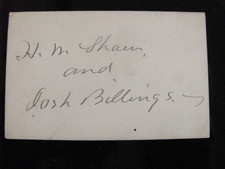 H. W. Shaw
and
Josh Billings